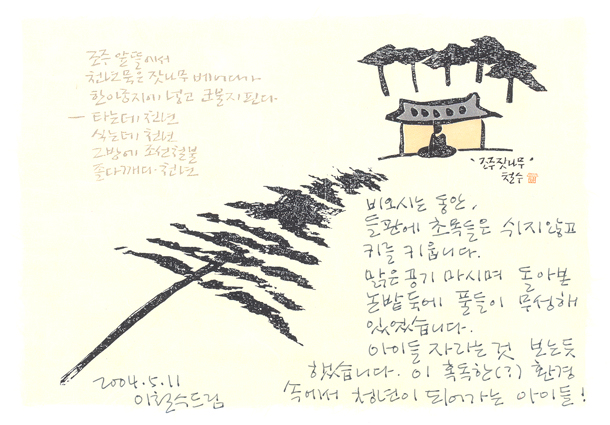 조주 앞뜰에서
천년 묵은 잣나무 베어다가
한아궁지에 넣고 군불지핀다
— 타는데 천년
식는데 천년
그방에 조선철불
졸다깨다 천년
"조주 잣나무"
철수
비오시는 동안,
들판에 초목들은 쉬지않고
키를 키웁니다.
맑은공기 마시며 돌아본
논밭둑에 풀들이 무성해
있었습니다.
아이들 자라는것 보는듯
했습니다. 이 혹독한(?) 환경
속에서 청년이 되어가는 아이들!
2004.5.11
이철수드림